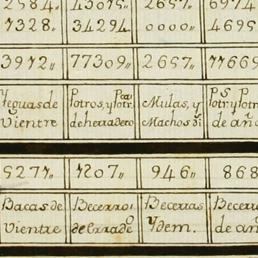 2584„ 43015„ 2657„ 6974
7328„ 34294 0000„ 4695
3972„ 77309„ 2657„ 77669
Yeguas de Vientre
Potros, y Potr.as de herradero
Mulas, y Machos
P.s Potr. y Potr. de año
9277„ 7207„ 946„ 868
Bacas de Vientre
Becerro. de Errad.o
Becerras Ydem.
Becerr de añ